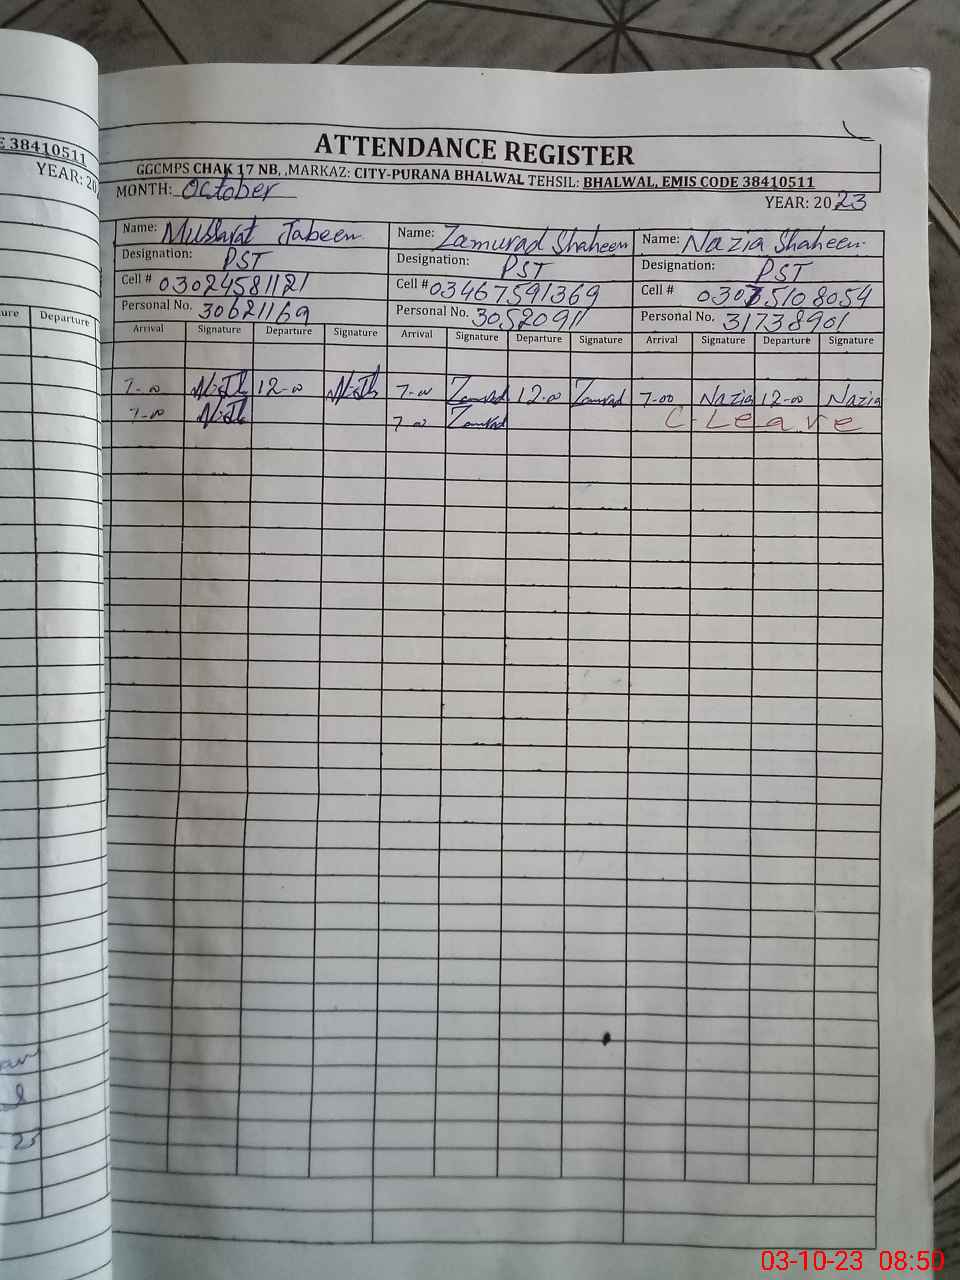 E 38410511
YEAR: 20
ure Departure
ATTENDANCE REGISTER
GGCMPS CHAK 17 NB, ,MARKAZ: CITY-PURANA BHALWAL TEHSIL: BHALWAL, EMIS CODE 38410511
MONTH: October
YEAR: 2023
Name: Mussarat Jabeen Name: Zamurad Shaheen Name: Nazia Shaheen
Designation: PST Designation: PST Designation: PST
Cell # 03024581121 Cell # 03467591369 Cell # 03075108054
Personal No. 30621169 Personal No. 30520911 Personal No. 31738901
Arrival Signature Departure Signature Arrival Signature Departure Signature Arrival Signature Departure Signature
7-00 12-00 7-00 Zamurad 12-00 Zamurad 7-00 Nazia 12-00 Nazia
7-00 7-00 Zamurad C-Leave
25
03-10-23 08:50